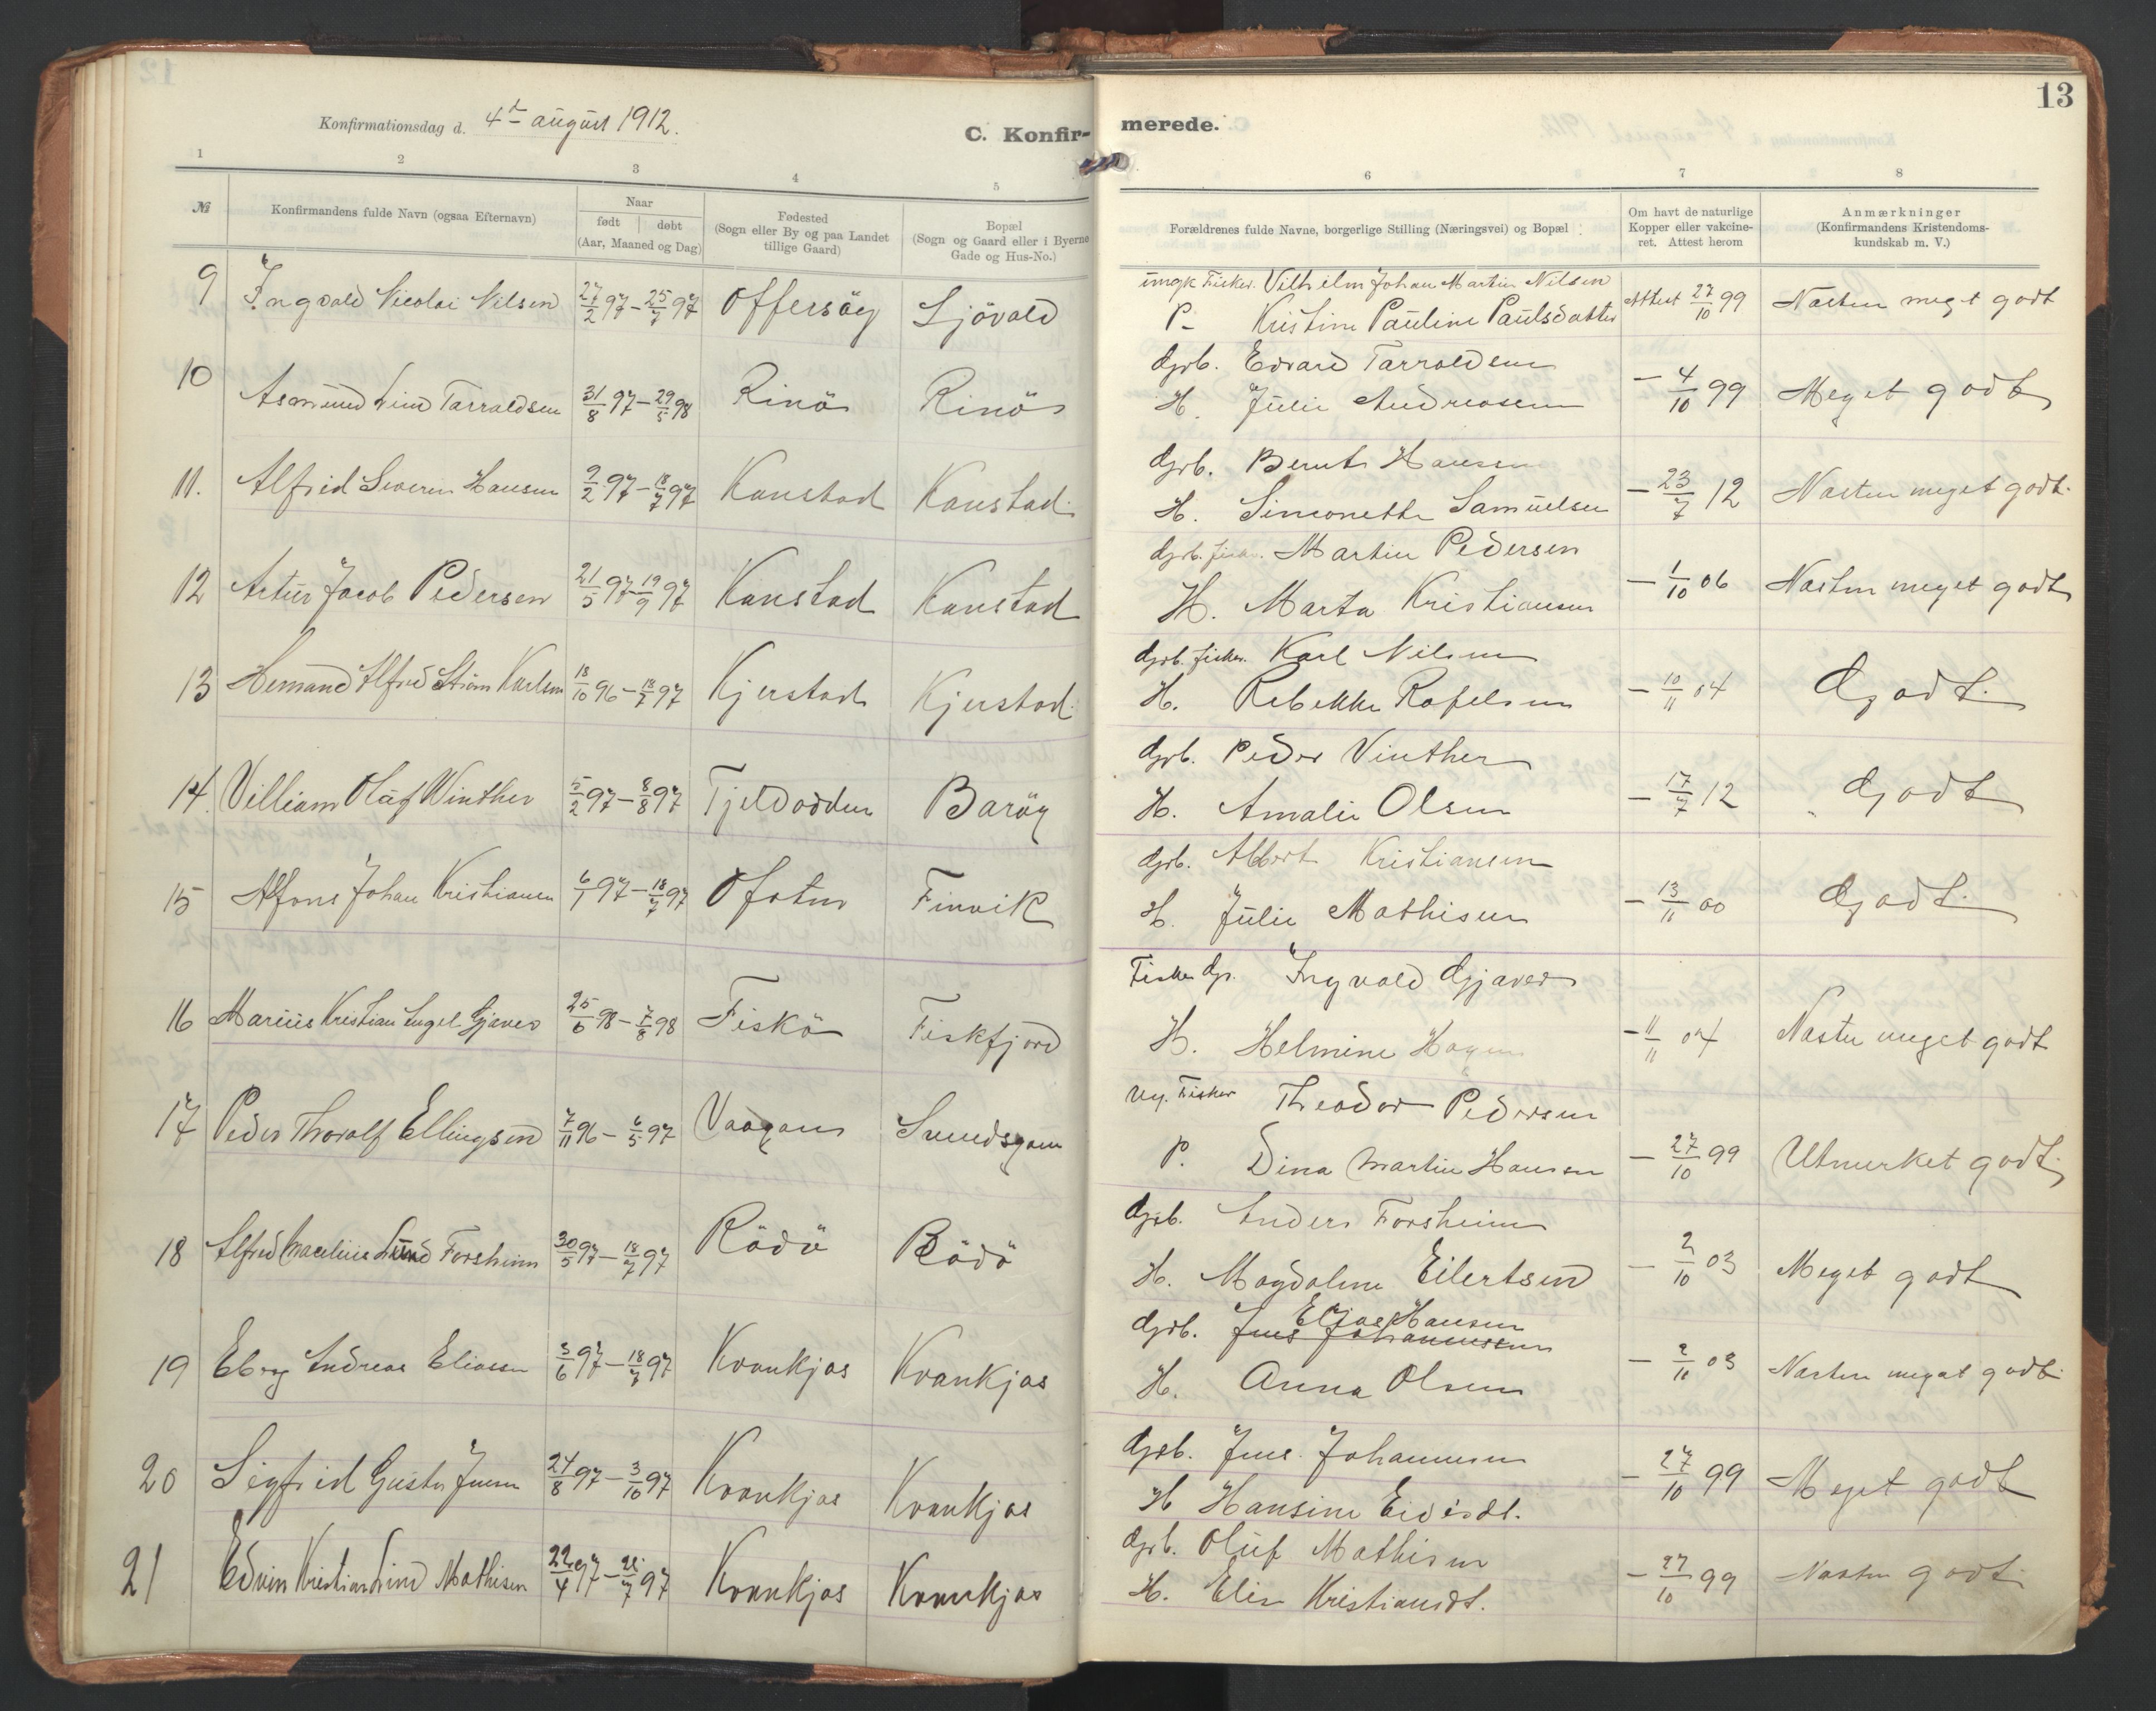 Konfirmationsdag d. 4de august 1912.
C. Konfir-
merede.
13
1 2 3 4 5 6 7 8
№
Konfirmandens fulde Navn (ogsaa Efternavn)
Naar
født døbt
(Aar, Maaned og Dag)
Fødested
(Sogn eller By og paa Landet
tillige Gaard)
Bopæl
(Sogn og Gaard eller i Byerne
Gade og Hus-No.)
Forældrenes fulde Navne, borgerlige Stilling (Næringsvei) og Bopæl
Om havt de naturlige
Kopper eller vakcine-
ret. Attest herom
Anmærkninger
(Konfirmandens Kristendoms-
kundskab m. V.)
9 Ingvald Nicolai Nilsen 27/2 97 - 25/7 97 Offersöy Sjövold
ungk Fisker. Vilhelm Johan Martin Nilsen
P- Kristine Pauline Paulsdatter Attest 27/10 99 Næsten meget godt
10 Asmund Lind Tarraldsen 31/8 97 - 29/5 98 Rinö Rinö
Grb. Edvard Tarraldsen
H. Julie Andreasen - 4/10 99 Meget godt
11. Alfred Severin Hansen 9/2 97 - 18/7 97 Kanstad Kanstad.
Grb. Bernt Hansen
H. Simonette Samuelsen - 23/7 12 Næsten meget godt.
12 Artur Jacob Pedersen 21/5 97 - 19/9 97 Kanstad Kanstad
Grb. fisker. Martin Pedersen
H. Marta Kristiansen - 1/10 06 Næsten meget godt
13 Hemand Alfred Ström Karlsen 18/10 96 - 18/7 97 Kjerstad Kjerstad.
Grb. fisker. Karl Nilsen
H. Rebekke Rafelsen - 10/11 04 Godt.
14. Villiam Olaf Winther 5/2 97 - 8/8 97 Tjeldodden Baröy
Grb. Peder Vinther
H. Amalie Olsen - 17/7 12 Godt
15 Alfons Johan Kristiansen 6/1 97 - 18/7 97 Ofoten Finvik
Grb. Albert Kristiansen
H. Julie Mathisen - 13/11 00 Godt.
16 Marius Kristian Engel Gjæver 25/6 98 - 7/8 98 Fiskö Fiskfjord
Fisker Gr. Ingvald Gjæver
H. Helmine Hagen - 11/11 04 Næsten meget godt
17 Peder Thoralf Ellingsen 7/11 96 - 6/5 97 Vaagan Svendsgam
Ug. Fisker Theodor Pedersen
P. Dina Martine Hansen - 27/10 99 Utmerket godt.
18 Alfred Marelius Lund Forsheim 30/5 97 - 18/7 97 Rödö Rödö
Grb. Anders Forsheim
H. Magdalene Eilertsen - 2/10 03 Meget godt
19 Eberg Andreas Eliassen 3/6 97 - 18/7 97 Kvankjos Kvankjos
Elias Hansen
Grb. Jens Johannessen
H. Anna Olsen - 2/11 03 Næsten meget godt.
20 Sigfrid Gustav Jensen 24/8 97 - 3/10 97 Kvankjos Kvankjos
Grb. Jens Johannesen
H Hansine Eidisdt. - 27/10 99 Meget godt
21 Edvin Kristian Lind Mathisen 22/4 97 - 22/7 97 Kvankjos Kvankjos
Grb. Oluf Mathisen
H. Elen Kristiansdt. - 27/10 99 Næsten godt